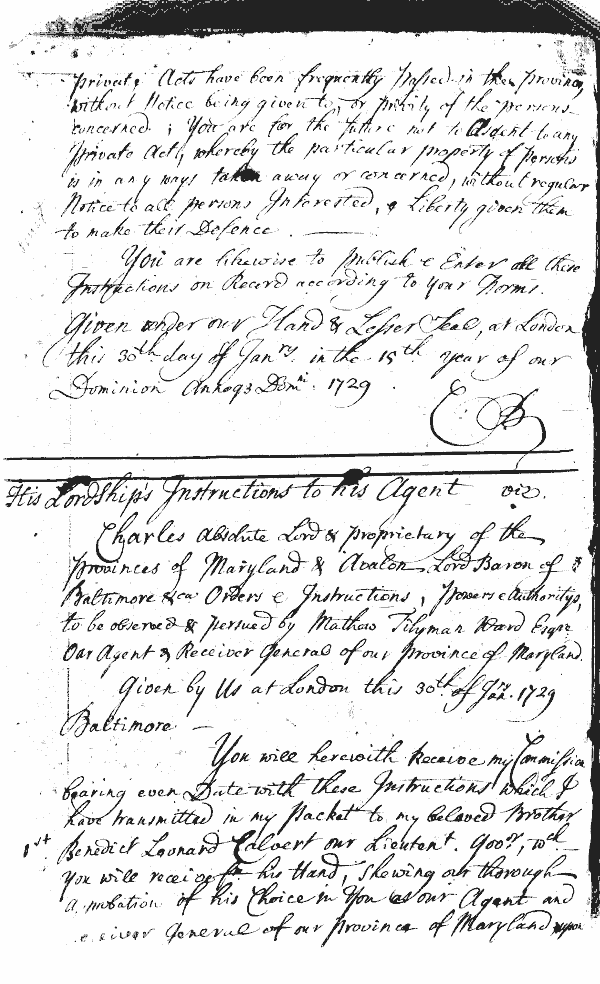 private Acts have been frequently passed in the Province,
without Notice being given to, or privity of the persons
concerned; You are for the future not to Assent to any
Private Act, whereby the particular property of Persons
is in any ways taken away or concerned, without regular
Notice to all persons Interested, & Liberty given them
to make their Defence.
You are likewise to publish & Enter all these
Instructions on Record according to your Forms.
Given under our Hand & Lesser Seal, at London
this 30th day of Janry. in the 15th year of our
Dominion Annoq3 Domni. 1729.
C B
His Lordship's Instructions to his Agent viz.
Charles Absolute Lord & proprietary of the
Provinces of Maryland & Avalon Lord Baron of
Baltimore &ca Orders & Instructions, Powers & Authoritys,
to be observed & persued by Mathew Tilyman Ward Esqr.
Our Agent & Receiver General of our Province of Maryland.
Given by Us at London this 30th of Janry. 1729
Baltimore —
You will herewith Receive my Commission
bearing even Date with these Instructions which I
have transmitted in my Packet to my beloved Brother
1st Benedict Leonard Calvert our Lieutent. Govr., wch
you will receive fm his Hand, shewing our thorough
of his Choice in You as our Agent and
General of our Province of Maryland upon